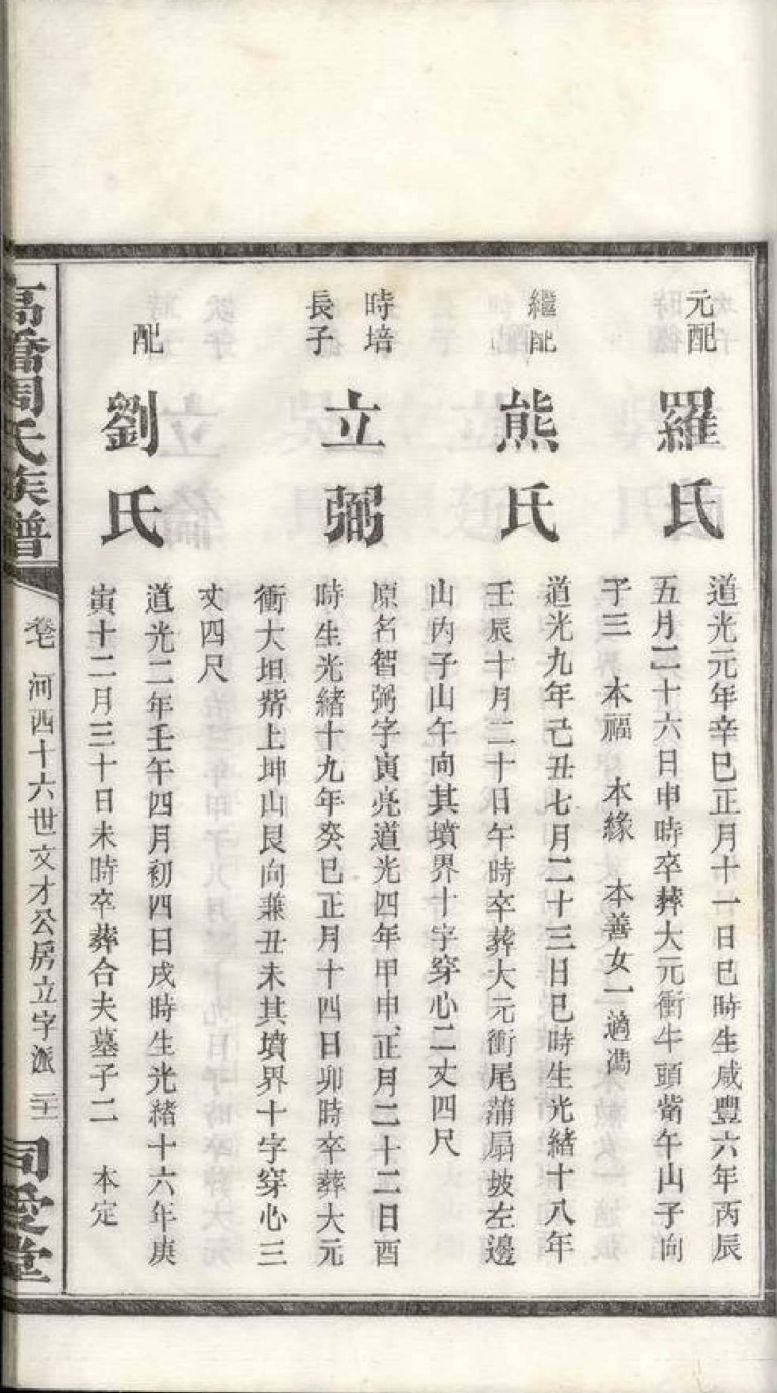 元配
羅氏
道光元年辛巳正月十一日巳時生咸豐六年丙辰
五月二十六日申時卒葬大元衝牛頭嘴午山子向
子三 本福 本緣 本善女一適馮
繼配
熊氏
道光九年己丑七月二十三日巳時生光緒十八年
壬辰十月二十日午時卒葬大元衝尾蒲扇坡左邊
山內子山午向其墳界十字穿心二丈四尺
時培
長子
立弼
原名智弼字寅亮道光四年甲申正月二十二日酉
時生光緒十九年癸巳正月十四日卯時卒葬大元
衝大坦嘴上坤山艮向兼丑未其墳界十字穿心三
丈四尺
配
劉氏
道光二年壬午四月初四日戌時生光緒十六年庚
寅十二月三十日未時卒葬合夫墓子二 本定
高橋周氏族譜
卷七
河西十六世文才公房立字派
二十一
同愛堂